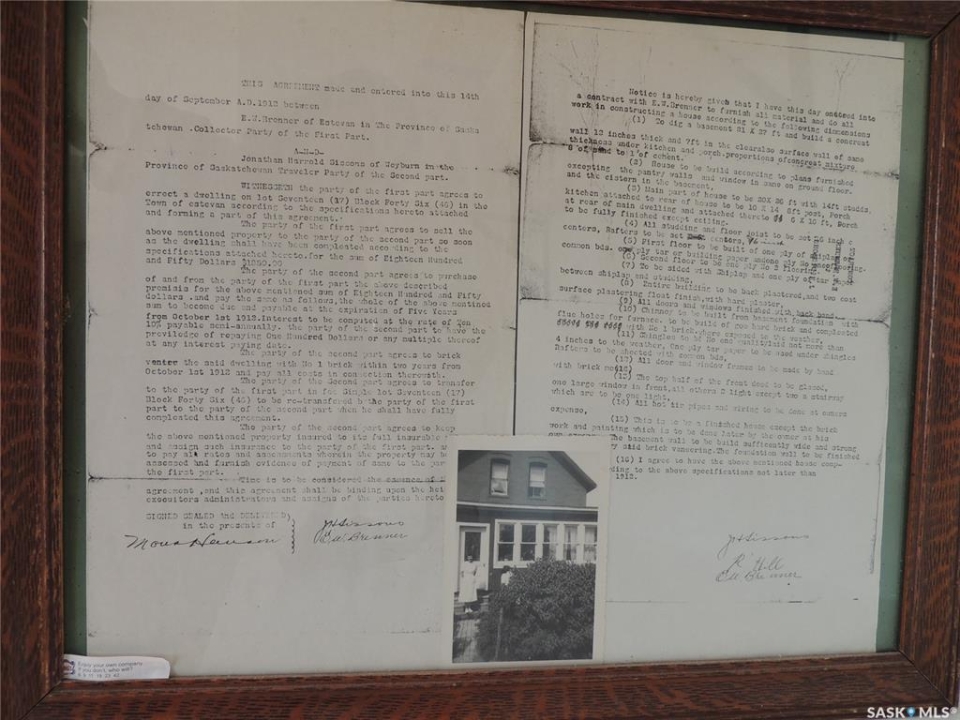 THIS AGREEMENT made and entered into this 14th
day of September A.D.1912 between
E.W.Brenner of Estevan in The Province of Saska
tchewan .Collector Party of the First Part.
A.N.D.
Jonathan Harrold Sissons of Weyburn in the
Province of Saskatchewan Traveler Party of the Second part.
WITNESSETH the party of the first part agrees to
errect a dwelling on lot Seventeen (17) Block Forty Six (46) in the
Town of estevan according to the specifications hereto attached
and forming a part of this agreement.
The party of the first part agrees to sell the
above mentioned property to the party of the second part so soon
as the dwelling shall have been compleated according to the
specifications attached hereto.for the sum of Eighteen Hundred
and Fifty Dollars
The party of the second part agrees to purchase
of and from the party of the first part the above described
premisis for the above mentioned sum of Eighteen Hundred and Fifty
dollars .and pay the same as follows,the whole of the above mentioned
sum to become due and payable at the expiration of Five Years
from October 1st 1912.Interest to be computed at the rate of Ten
10% payable semi-annually. the party of the second part to have the
priviledge of repaying One Hundred Dollars or any multiple thereof
at any interest paying date.
The party of the second part agrees to brick
the said dwelling with No 1 brick within two years from
October 1st 1912 and pay all costs in connection therewith.
The party of the Second part agrees to transfer
to the party of the first part in fee Simple lot Seventeen (17)
Block Forty Six (46) to be re-transfered b the party of the first
part to the party of the second part when he shall have fully
compleated this agreement.
The party of the second part agrees to keep
the above mentioned property insured to its full insurable
and assign such insurance to the party of the first part.
to pay all rates and assessments wherein the property may be
assessed and furnish evidence of payment of same to the
the first part.
Time is to be considered the essence of
agreement ,and this agreement shall be binding upon the
executors administrators and assigns of the parties hereto
SIGNED SEALED AND DELIVERED)
in the presents of
Mona Hanson
JHSissons
E.W.Brenner
Notice is hereby given that I have this day entered into
a contract with E.W.Brenner to furnish all material and do all
work in constructing a house according to the following dimensions
(1) To dig a basement 21 X 27 ft and build a concreet
wall 12 inches thick and 7ft in the clear,also surface wall of same
thickness under kitchen and porch.proportions of congreet mixture,
6 of sand to 1 of cement.
(2) House to be build according to plans furnished
excepting the pantry walls and window in same on ground floor.
and the cistern in the basement,
(3) Main part of house to be 20X 26 ft with 14ft studds,
kitchen attached to rear of house to be 10 X 14 8ft post, Porch
at rear of main dwelling and attached thereto 6 X 10 ft, Porch
to be fully finished except ceiling.
(4) All studding and floor joist to be set 16 inch c
centers, Rafters to be set centers,
(5) First floor to be built of one ply of shiplap,
one ply tar or building paper and one ply No flooring.
common bds. (6) Second floor to be one ply No 2 flooring
(7) To be sided with Shiplap and one ply of tar paper
between shiplap and studding.
(8) Entire building to be back plastered,and two coat
surface plastering float finish,with hard plaster.
(9) All doors and windows finished with back band.
(10) Chimney to be built from basement foundation with
flue holes for furnace. to be build of good hard brick and compleated
with No 1 brick,where exposed to the weather,
(11) Shingles to be No one quality,laid not more than
4 inches to the weather, One ply tar paper to be used under shingles
Rafters to be sheeted with common bds,
(12) All door and window frames to be made by hand
with brick
(13) The top half of the front door to be glazed,
one large window in front,all others 2 light except two a stairway
which are to be one light,
(14) All hot air pipes and wiring to be done at owners
expense,
(15) This is to be a finished house except the brick
work and painting which is to be done later by the owner at his
The basement wall to be build sufficently wide and strong
said brick vaneering.The foundation wall to be finished
(16) I agree to have the above mentioned house comp-
ding to the above specifications not later than
1912.
JHSissons
R Hill
E.W.Brenner
Enjoy your own company.
If you don't, who will?
SASK MLS®